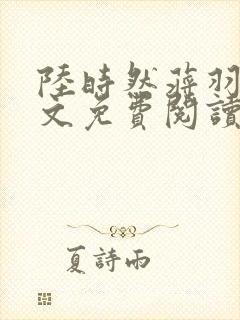 陸時然蒋羽
文免費閱讀
夏詩雨